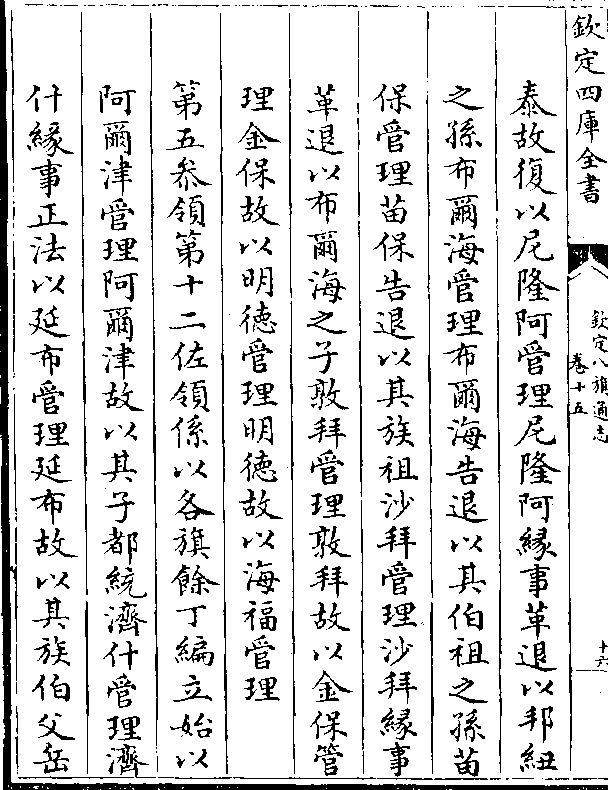 欽定四庫全書
欽定八旗通志
卷十五
十六
泰故復以尼隆阿管理尼隆阿緣事革退以邦紐
之孫布爾海管理布爾海告退以其伯祖之孫苗
保管理苗保告退以其族祖沙拜管理沙拜緣事
革退以布爾海之子敦拜管理敦拜故以金保管
理金保故以明德管理明德故以海福管理
第五叅領第十二佐領係以各旗餘丁編立始以
阿爾津管理阿爾津故以其子都統濟什管理濟
什緣事正法以延布管理延布故以其族伯父岳